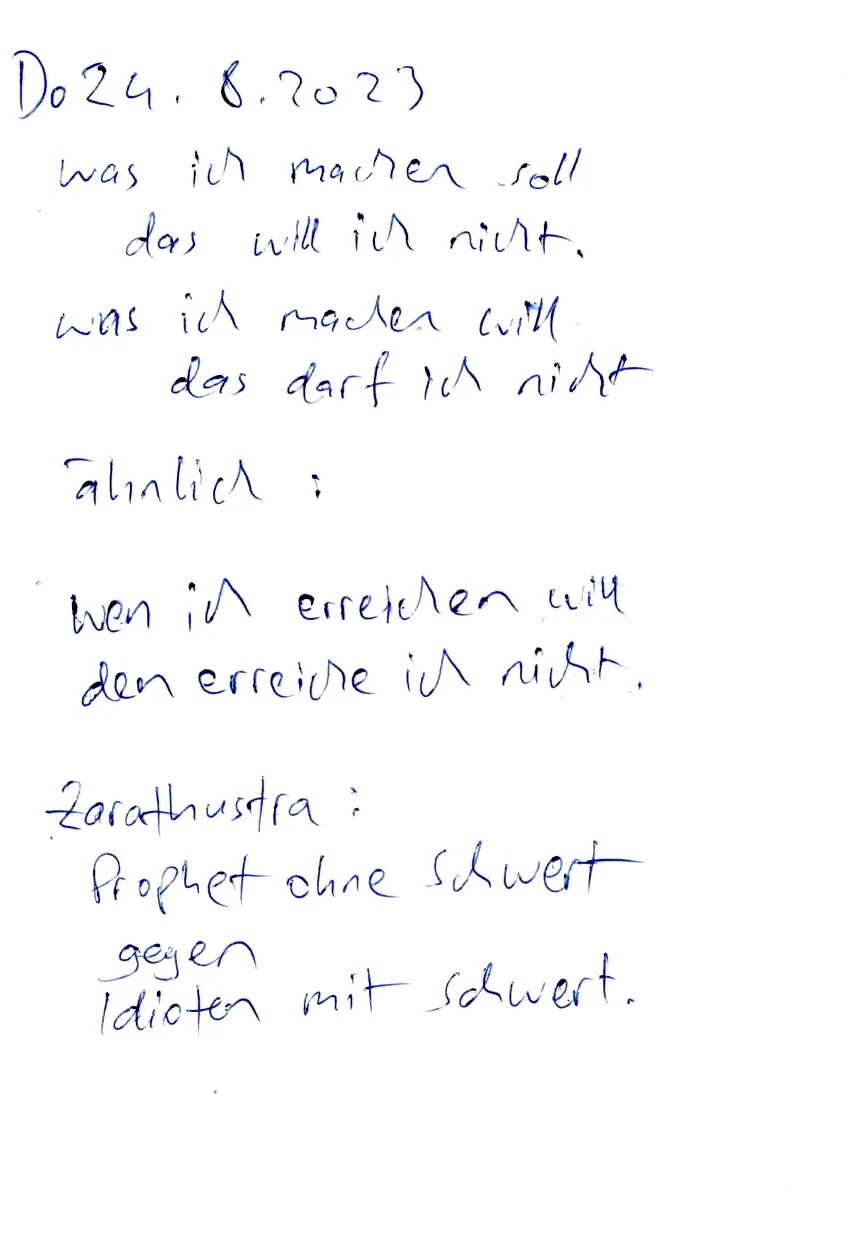 Do 24. 8. 2023
was ich machen soll
das will ich nicht.
was ich machen will
das darf ich nicht
ähnlich :
wen ich erreichen will
den erreiche ich nicht.
Zarathustra :
Prophet ohne schwert
gegen
Idioten mit schwert.